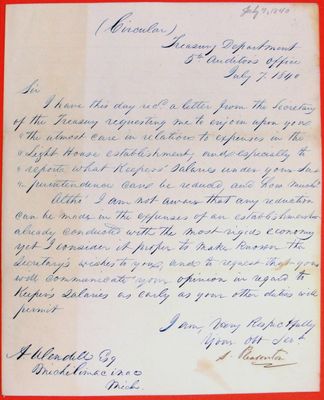 July 7, 1840
(Circular)
Treasury Department
5th Auditors Office
July 7. 1840
Sir
I have this day recd a letter from the Secretary
of the Treasury requesting me to enjoin upon you
"the utmost care in relation to expenses in the
"Light House establishment, and especially to
"report what Keepers' Salaries under your Su-
"perintendence can be reduced, and how much"
Altho' I am not aware that any reduction
can be made in the expenses of an establishment
already conducted with the most rigid economy
yet I consider it proper to make known the
Secretary's wishes to you, and to request that you
will communicate your opinion in regard to
Keepers Salaries as early as your other duties will
permit
I am, Very Respectfully
Your Obt Servt
S. Pleasonton
A Wendell Esq
Michilimacinac
Mich.